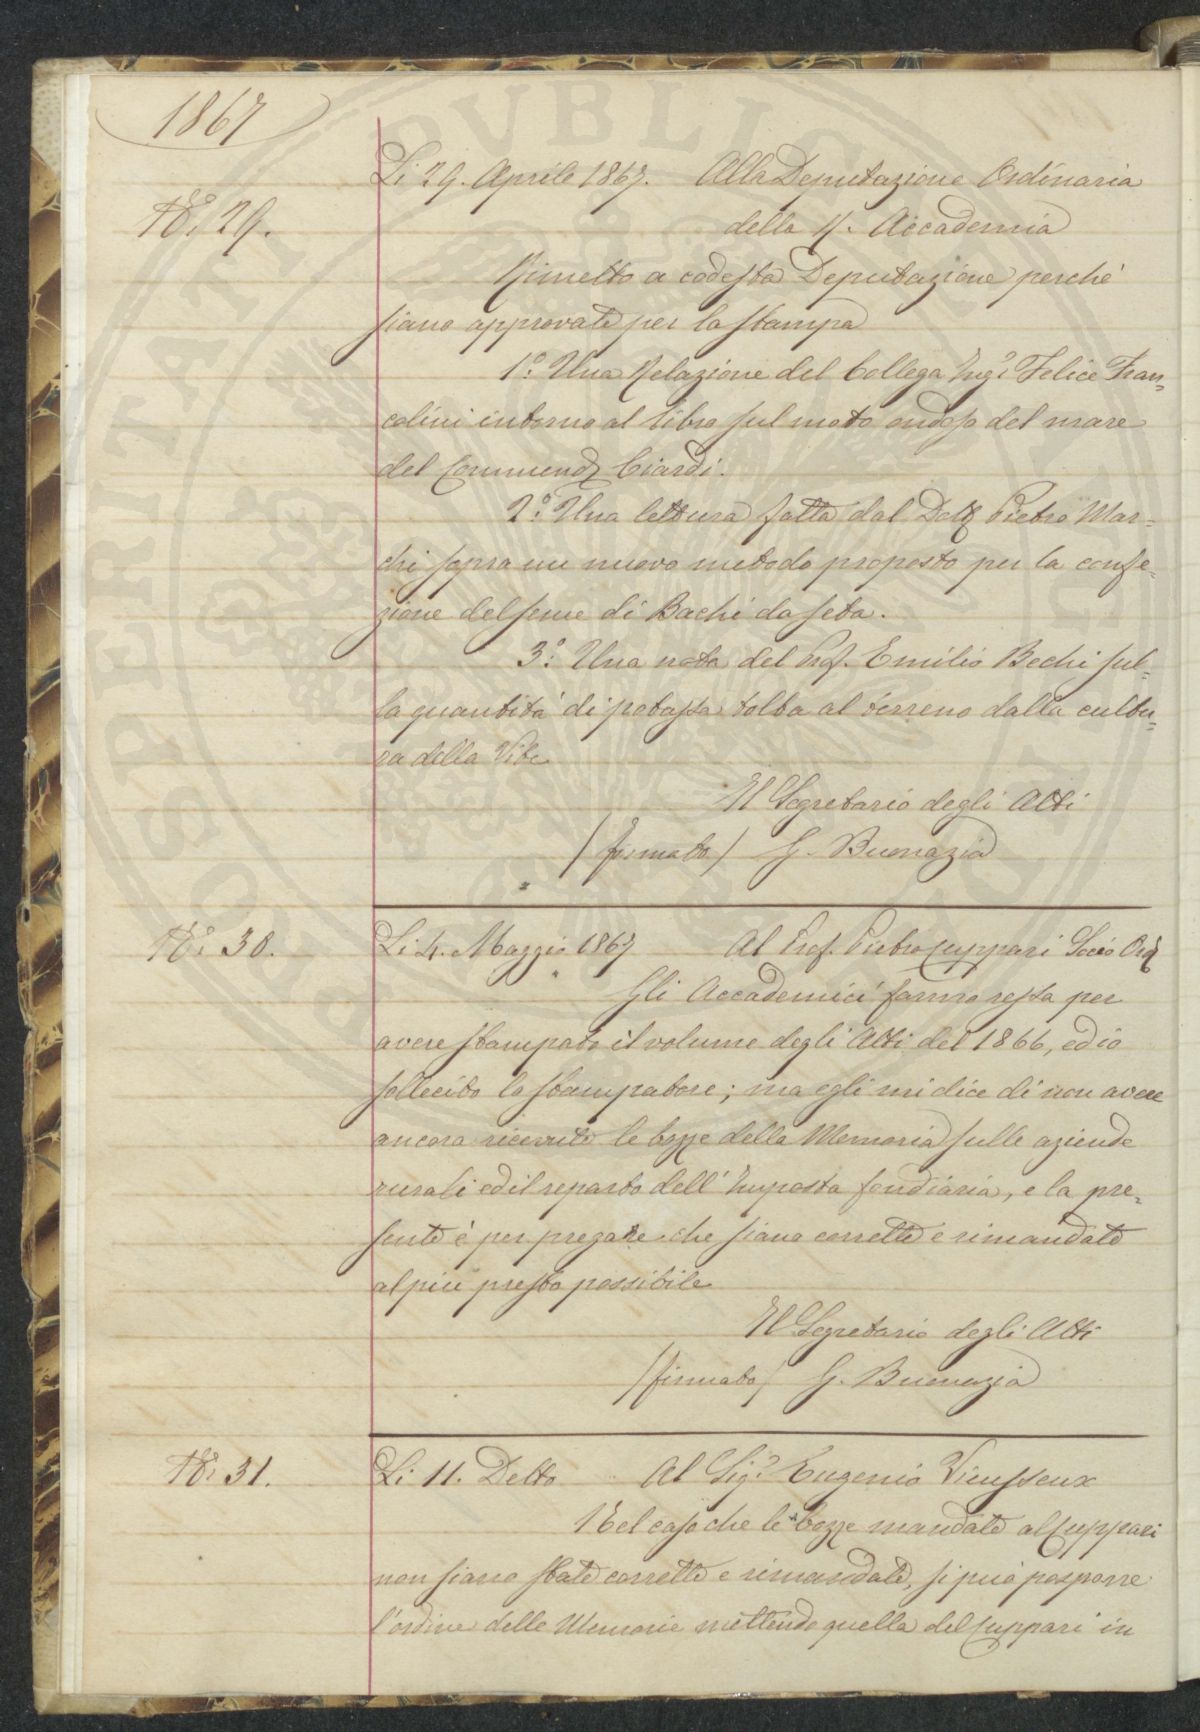 1867
Li 29. Aprile 1867. Alla Deputazione Ordinaria
N.º 29.
della R. Accademia
Rimetto a codesta Deputazione perchè
siano approvate per la stampa
1.º Una Relazione del Collega Ing.e Felice Fran=
colini intorno al libro sul moto ondoso del mare
del Commend.e Cialdi.
2.º Una lettura fatta dal Dott. Pietro Mar=
chi sopra un nuovo metodo proposto per la confe=
zione del seme di Bachi da seta.
3.º Una nota del Prof. Emilio Bechi sul=
la quantità di potassa tolta al terreno dalla cultu=
ra della Vite
Il Segretario degli Atti
/firmato/ G. Buonazia
N.º 30. Li 4. Maggio 1867 Al Prof. Pietro Cuppari Socio Ord.
Gli Accademici fanno ressa per
avere stampato il volume degli Atti del 1866, ed io
sollecito lo stampatore; ma egli mi dice di non avere
ancora ricevuto le bozze della Memoria sulle aziende
rurali ed il reparto dell'Imposta fondiaria, e la pre=
sente è per pregare che siano corrette e rimandate
al più presto possibile
Il Segretario degli Atti
/firmato/ G. Buonazia
N.º 31. Li 11. Detto Al Sig.e Eugenio Vieusseux
Nel caso che le bozze mandate al Cuppari
non siano state corrette e rimandate, si può posporre
l'ordine delle Memorie mettendo quella del Cuppari in
PROSPERITATI PUBLICAE